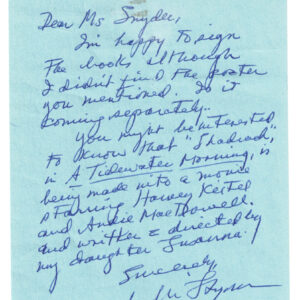 Dear Ms Snyder,
I'm happy to sign
the books although
I didn't find the poster
you mentioned. Is it
coming separately..
You might be interested
to know that "Shadrach,"
in A Tidewater Morning, is
being made into a movie
starring Harvey Keitel
and Andie MacDowell
and written & directed by
my daughter Susanna.
Sincerely,
Styron